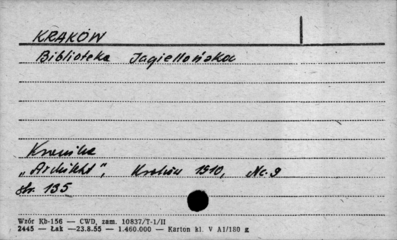 KRAKÓW
Biblioteka Jagiellońska
Kronika
„Architekt", Kraków 1910, Nr. 9
str. 135
Wzór Kb-156 — CWD, zam. 10837/T-1/II
2445 — Łak —23.8.55 — 1.460.000 — Karton kl. V A1/180 g